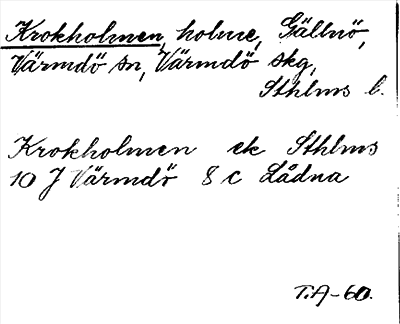 Krokholmen, holme, Gällnö,
Värmdö sn, Värmdö skg,
Sthlms l.
Krokholmen ek Sthlms
10 J Värmdö 8 c Lådna
T.A-60.